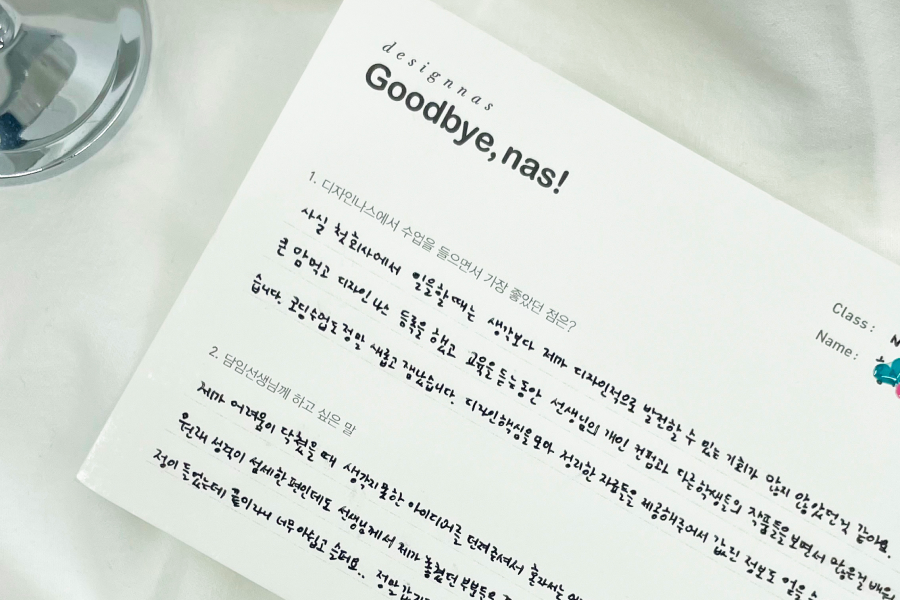 designnas
Goodbye, nas!
Class:
Name:
1. 디자인나스에서 수업을 들으면서 가장 좋았던 점은?
사실 첫 회사에서 일을할때는 생각보다 제가 디자인적으로 발전할 수 있는 기회가 많지 않았던것 같아요.
큰 맘먹고 디자인나스 등록을 했고 교육을 듣는동안 선생님의 개인 컨펌과 다른학생들의 작품들을보면서 많은걸 배워
습니다. 코딩수업도 정말 새롭고 재밌었습니다. 디자인핵심을모아 정리한 자료들을 제공해주어서 값진 정보도 얻을
2. 담임선생님께 하고 싶은 말
제가 어려움이 닥쳤을 때 생각지못한 아이디어를 던려주셔서 혼자서는
원래 성격이 섬세한 편인데도 선생님께서 제가 놓쳤던 부분들은
정이 들었는데 끝이라니 너무아쉽고 슬퍼요.. 정말